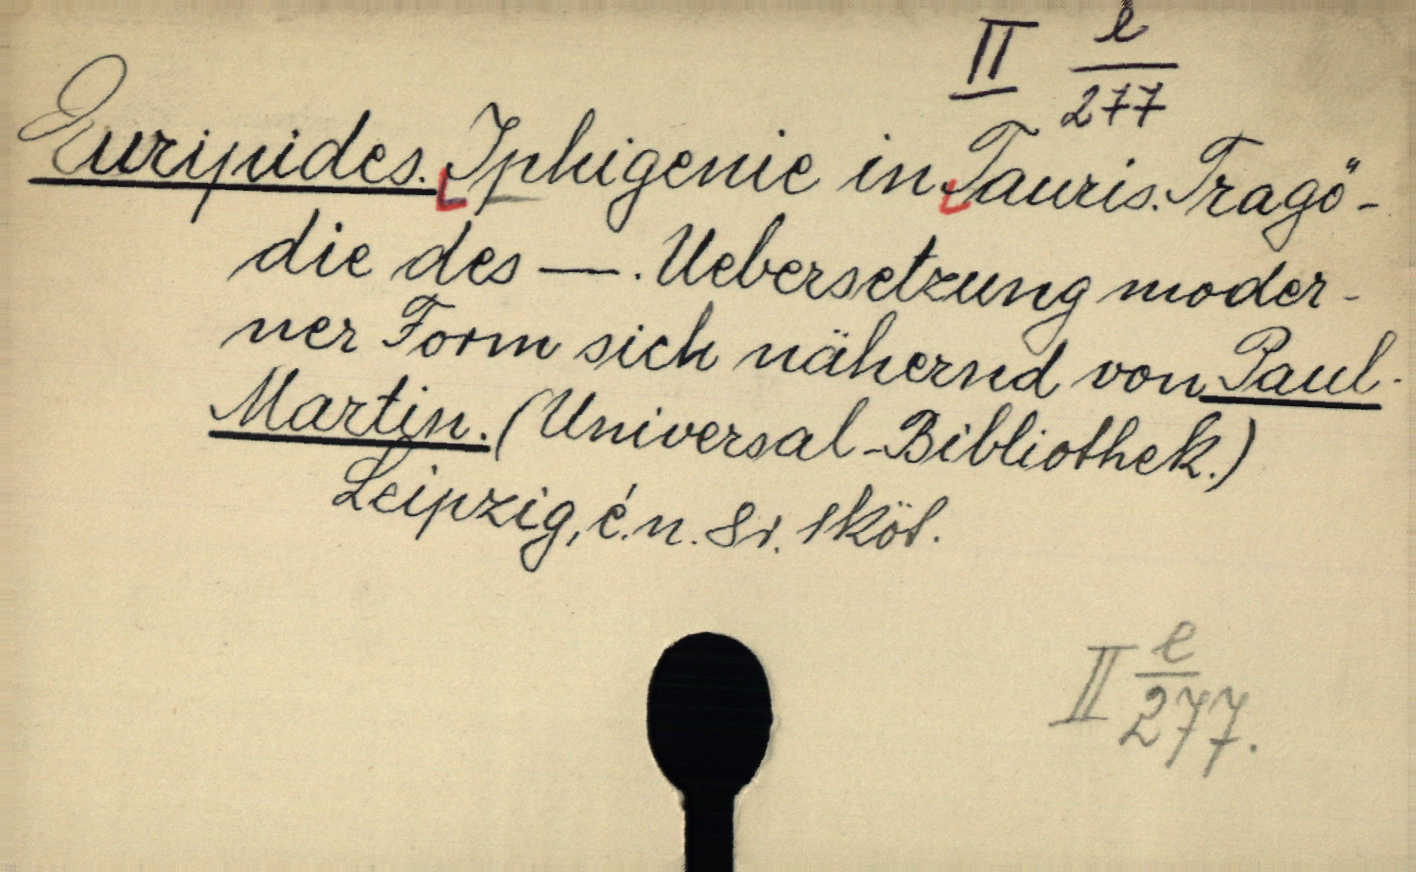 II e/277
Euripides. Iphigenie in Tauris. Tragö-
die des —. Uebersetzung moder-
ner Form sich nähernd von Paul
Martin. (Universal-Bibliothek.)
Leipzig, é.n. 8r. 1 köt.
II e/277.